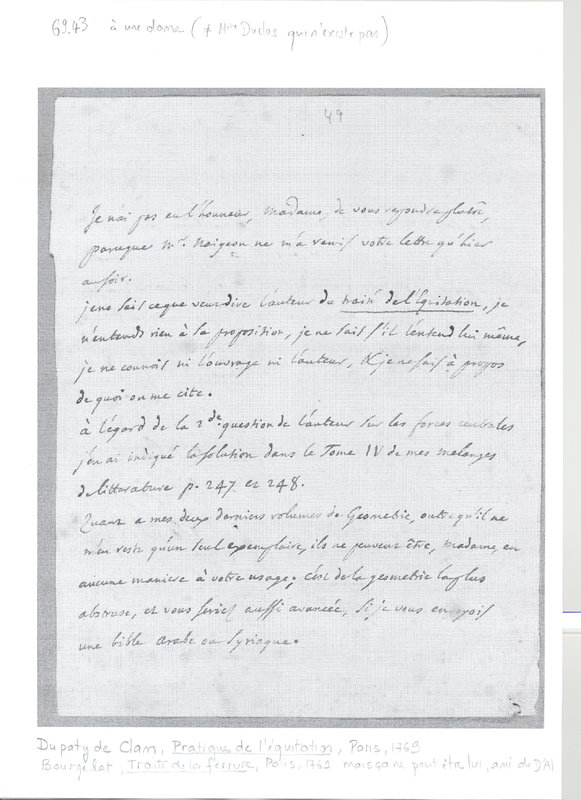 69.43 à une dame (≠ Mme Duclos qui n'existe pas)
49
Je n'ai pas eu l'honneur, Madame, de vous repondre plutôt,
parceque Mr. Naigeon ne m'a remis votre lettre qu'hier
au soir.
je ne sais ce que veut dire l'auteur du traité de l'Equitation, je
n'entends rien à sa proposition, je ne sais s'il l'entend lui même,
je ne connois ni l'ouvrage ni l'auteur, & je ne sais à propos
de quoi on me cite.
à l'égard de la 2de question de l'auteur sur les forces centrales
j'en ai indiqué la solution dans le Tome IV de mes melanges
de litterature p. 247 et 248.
Quant a mes deux derniers volumes de Geometrie, outre qu'il ne
m'en reste qu'un seul exemplaire, ils ne peuvent être, Madame, en
aucune maniere à votre usage; c'est de la geometrie la plus
abstruse, et vous seriez aussi avancée, si je vous envoyois
une bible arabe ou syriaque.
Dupaty de Clam, Pratique de l'équitation, Paris, 1769
Bourgelat, Traité de la ferrure, Paris, 1769 mais ça ne peut être lui, ami de D'Al